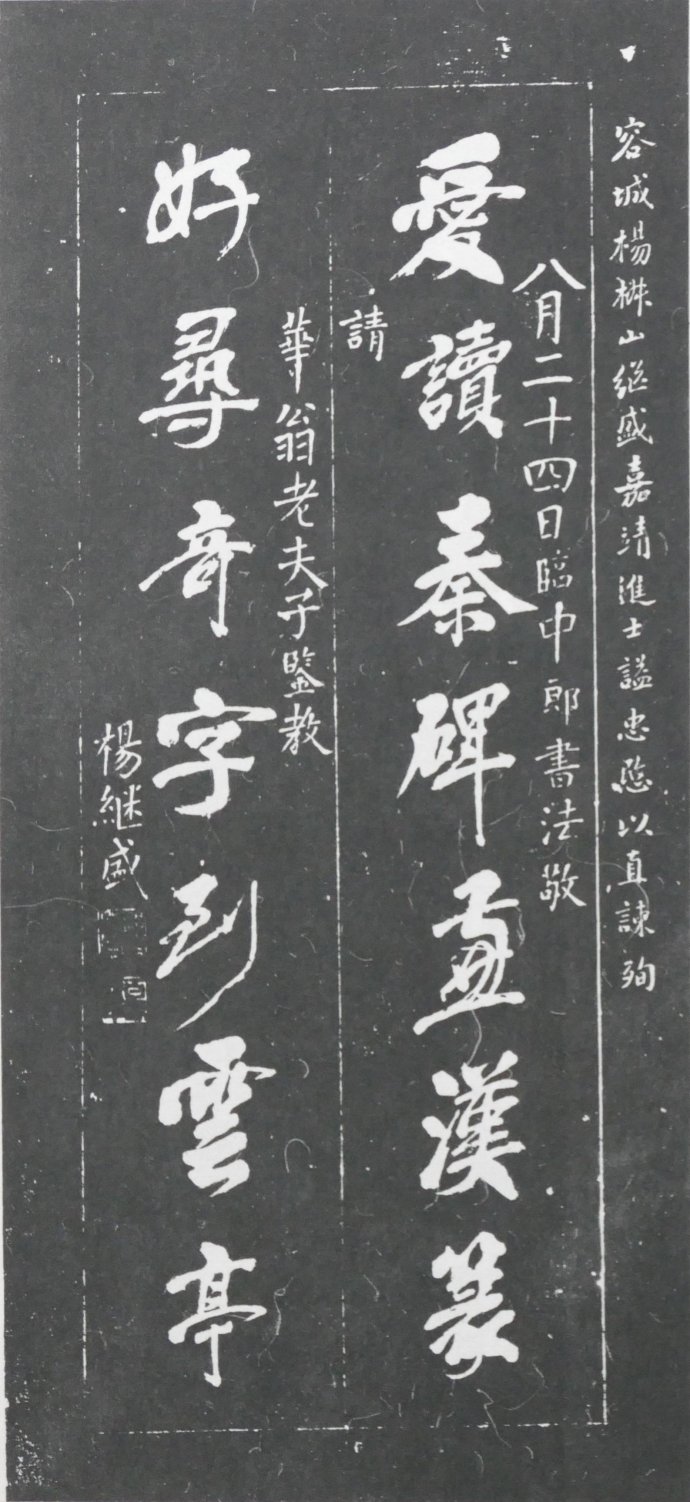 容城楊椒山继盛嘉靖進士謚忠愍以直諫殉
八月二十四日臨中郎書法敬
愛讀秦碑並漢篆
請
華翁老夫子鑒教
好尋奇字到雲亭
楊継盛